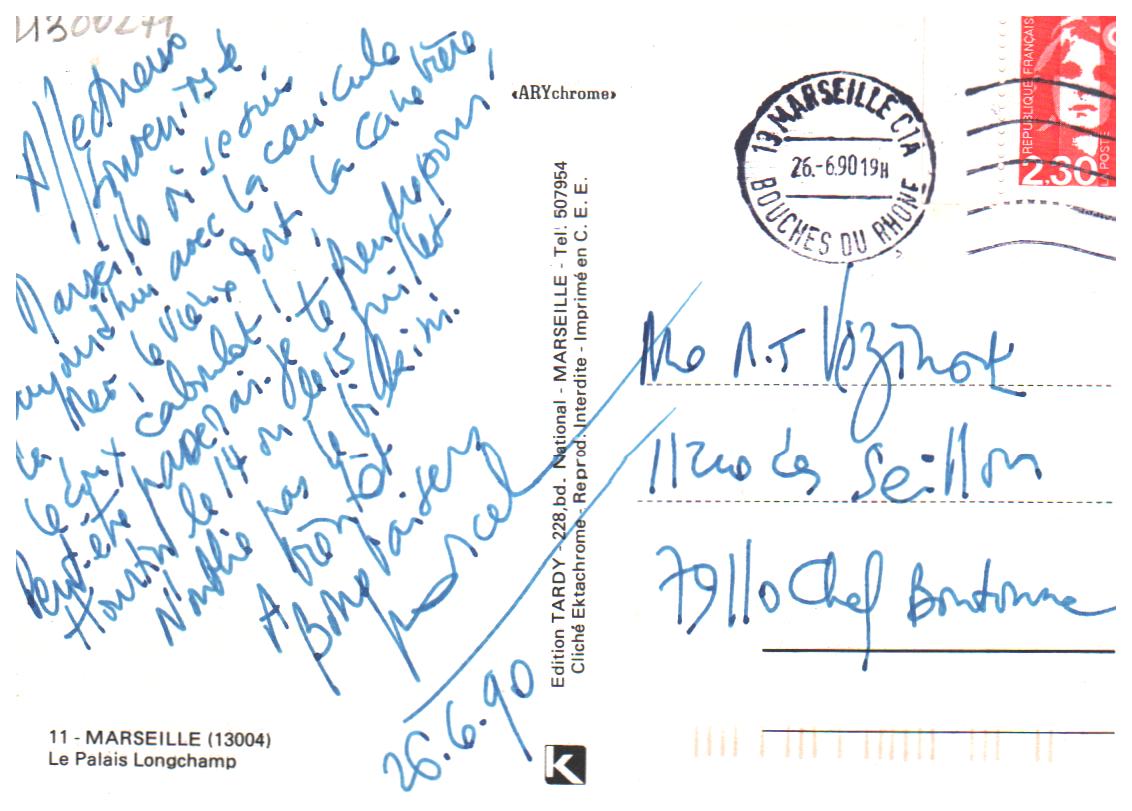 4300271
Affectueux
souvenirs de
Marseille où je suis
aujourd'hui avec la canicule
la Mer, le vieux Port, la Canebière,
le tout
Peut-être passerai-je te prendre pour
Hourtin le 14 ou le 15 juillet
N'oublie pas le
A bientôt
Bons baisers
Marcel
26.6.90
11 - MARSEILLE (13004)
Le Palais Longchamp
«ARYchrome»
Edition TARDY - 228, bd. National - MARSEILLE - Tel: 507954
Cliché Ektachrome - Reprod. Interdite - Imprimé en C. E. E.
K
13 MARSEILLE CTA
26.-6.90 19H
BOUCHES DU RHONE
REPUBLIQUE FRANÇAISE
2.30
LA POSTE
11 rue des
79110 Chef Boutonne